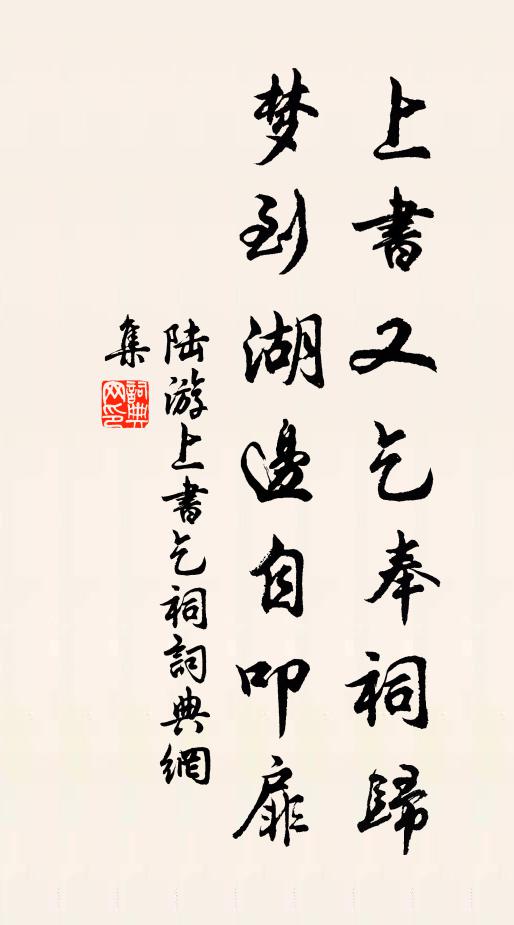 上書又乞奉祠歸
梦到湖邊自叩扉
陆游上書乞祠詞典網
集
詞典網印